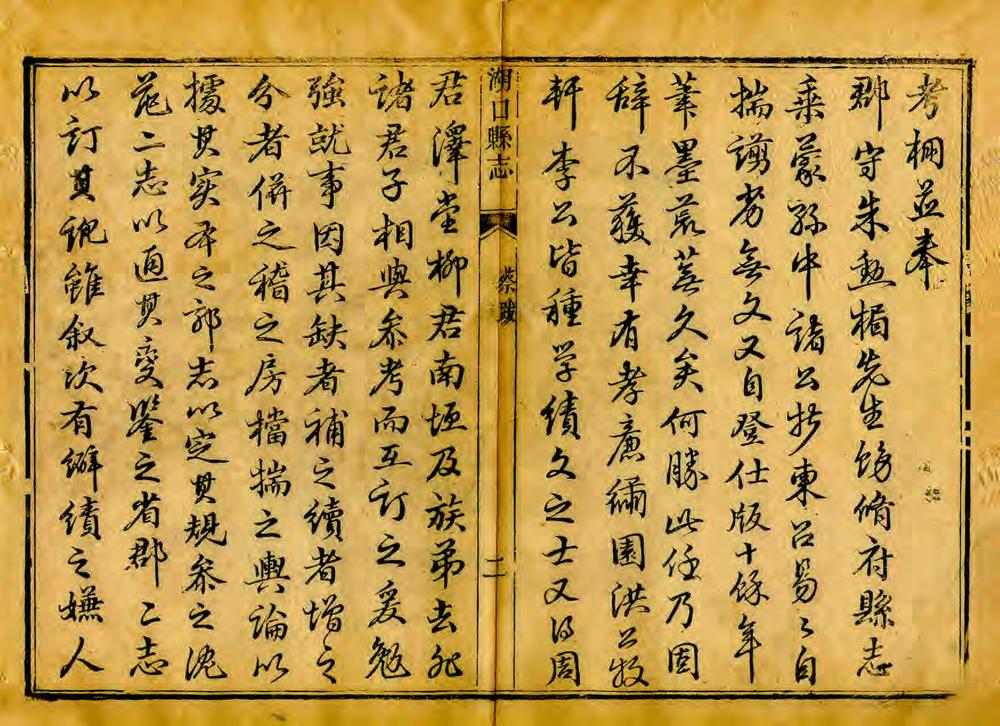 考棚並奉
郡守朱勳楣先生飭脩府縣志
乘蒙孫中諸公折柬召易易自
揣謭劣無文又自登仕版十餘年
筆墨荒蕪久矣何勝此任乃固
辭不獲幸有孝廉繡園洪公牧
軒李公皆種学績文之士又得周
湖口縣志
蔡跋
二
君澤堂柳君南垣及族弟去非
諸君子相與叅考而互訂之爰勉
強就事因其缺者補之續者增之
今者併之稽之房檔揣之輿論以
據其实本之郭志以定其規叅之沈
范二志以通其变鑒之省郡二志
以訂其訛雖叙次有癖績之嫌人